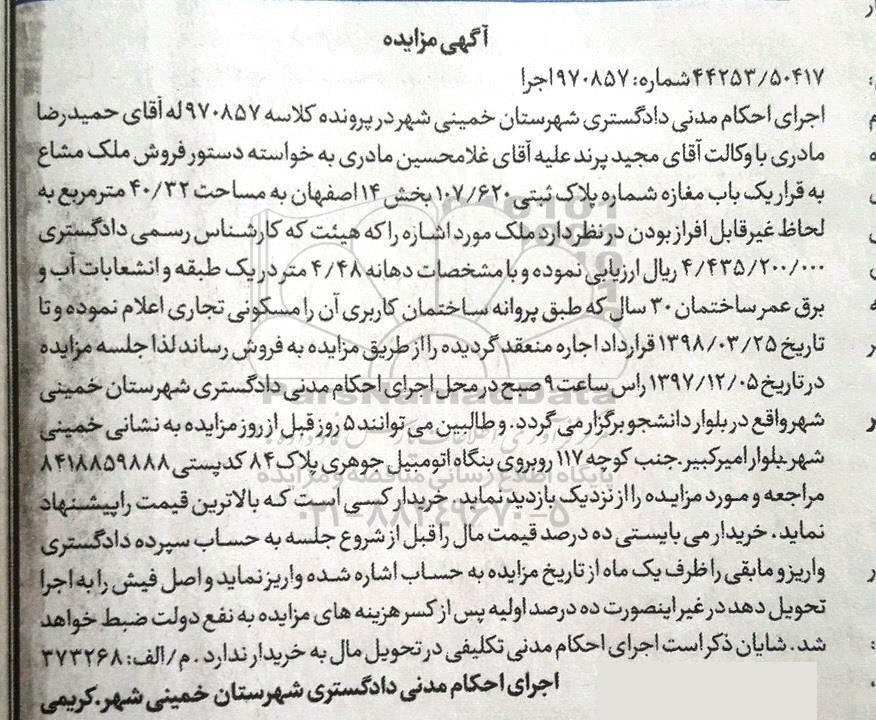 آگهی مزایده
۴۴۲۵۳/۵۰۴۱۷ شماره: ۹۷۰۸۵۷ اجرا
اجرای احکام مدنی دادگستری شهرستان خمینی شهر در پرونده کلاسه ۹۷۰۸۵۷ له آقای حمیدرضا
مادری با وکالت آقای مجید پرند علیه آقای غلامحسین مادری به خواسته دستور فروش ملک مشاع
به قرار یک باب مغازه شماره پلاک ثبتی ۱۰۷/۶۲۰ بخش ۱۴ اصفهان به مساحت ۴۰/۳۲ مترمربع به
لحاظ غیرقابل افراز بودن در نظر دارد ملک مورد اشاره را که هیئت که کارشناس رسمی دادگستری
۴/۴۳۵/۲۰۰/۰۰۰ ریال ارزیابی نموده و با مشخصات دهانه ۴/۴۸ متر در یک طبقه و انشعابات آب و
برق عمر ساختمان ۳۰ سال که طبق پروانه ساختمان کاربری آن را مسکونی تجاری اعلام نموده و تا
تاریخ ۱۳۹۸/۰۳/۲۵ قرارداد اجاره منعقد گردیده را از طریق مزایده به فروش رساند لذا جلسه مزایده
در تاریخ ۱۳۹۷/۱۲/۰۵ راس ساعت ۹ صبح در محل اجرای احکام مدنی دادگستری شهرستان خمینی
شهر واقع در بلوار دانشجو برگزار می گردد. و طالبین می توانند ۵ روز قبل از روز مزایده به نشانی خمینی
شهر.بلوار امیرکبیر.جنب کوچه ۱۱۷ روبروی بنگاه اتومبیل جوهری پلاک ۸۴ کدپستی ۸۴۱۸۸۵۹۸۸۸
مراجعه و مورد مزایده را از نزدیک بازدید نماید. خریدار کسی است که بالاترین قیمت را پیشنهاد
نماید. خریدار می بایستی ده درصد قیمت مال را قبل از شروع جلسه به حساب سپرده دادگستری
واریز و مابقی را ظرف یک ماه از تاریخ مزایده به حساب اشاره شده واریز نماید و اصل فیش را به اجرا
تحویل دهد در غیر اینصورت ده درصد اولیه پس از کسر هزینه های مزایده به نفع دولت ضبط خواهد
شد. شایان ذکر است اجرای احکام مدنی تکلیفی در تحویل مال به خریدار ندارد. م/الف: ۳۷۳۲۶۸
اجرای احکام مدنی دادگستری شهرستان خمینی شهر.کریمی
ParsNamadData
پایگاه اطلاع رسانی مناقصه و مزایده
۰۲۱-۸۸۳۴۹۶۷۰-۵